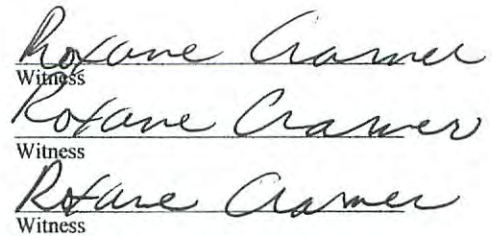 Roxane Cramer
Witness
Roxane Cramer
Witness
Roxane Cramer
Witness